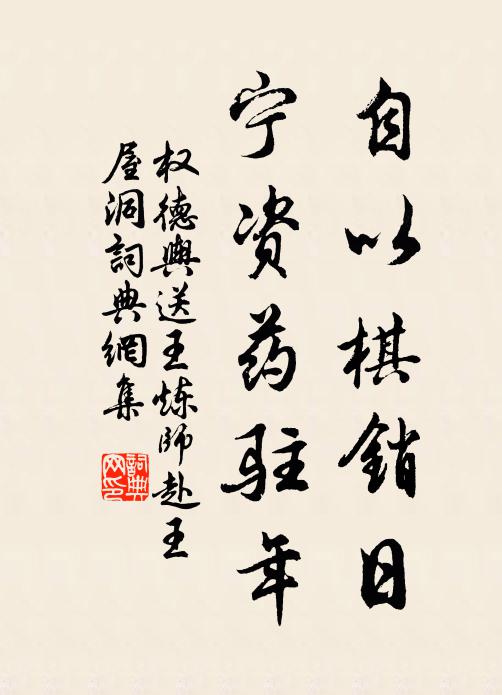 自以棋銷日
宁资药驻年
权德輿送王炼师赴王
屋洞詞典網集
詞典网印